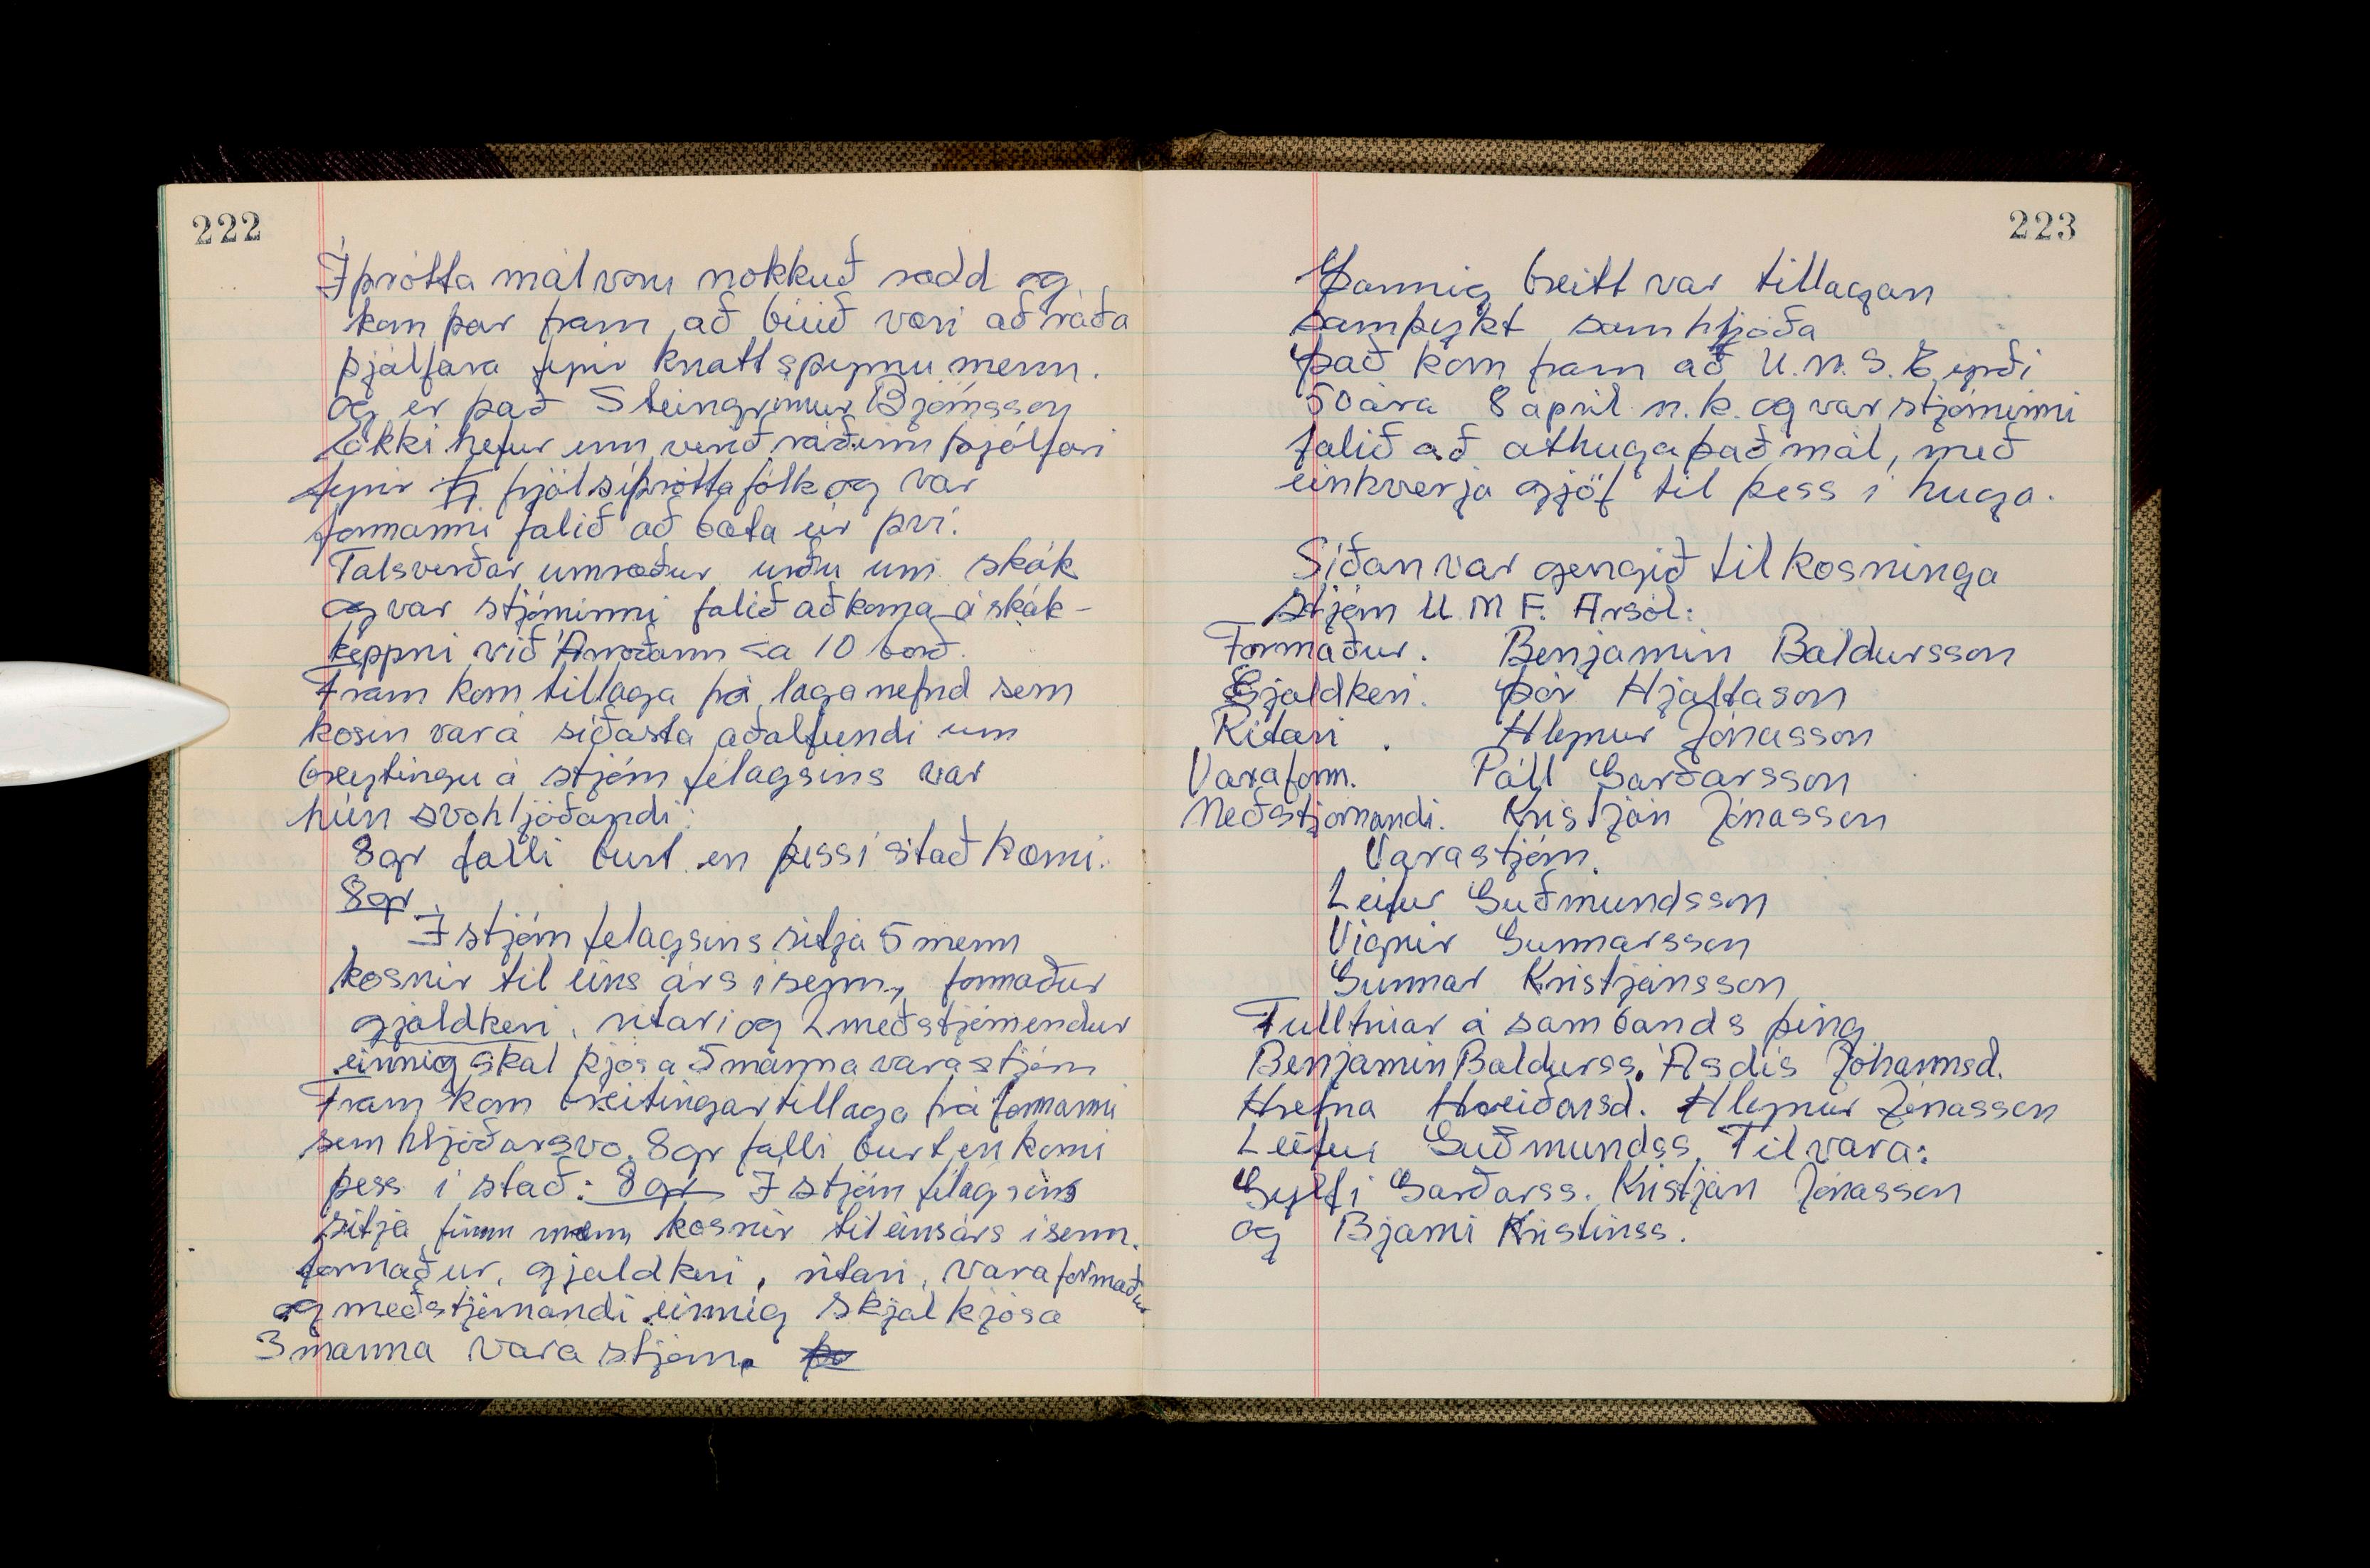 222
Íþrótta mál voru nokkuð rædd og
kom þar fram að búið væri að ráða
þjálfara fyrir knattspyrnu menn.
og er það Steingrímur Björnsson
Ekki hefur enn verið ráðinn þjálfari
fyrir frjálsíþróttafólk og var
formanni falið að bæta úr því.
Talsverðar umræður urðu um skák
og var stjórninni falið að koma á skák-
keppni við Árroðann ca 10 borð.
Fram kom tillaga frá laganefnd sem
kosin var á síðasta aðalfundi um
breytingu á stjórn félagsins var
hún svohljóðandi:
8gr falli burt en þess í stað komi.
8gr
Í stjórn félagsins sitja 5 menn
kosnir til eins árs í senn, formaður
gjaldkeri, ritari og 2 meðstjórnendur
einnig skal kjósa 5 manna varastjórn
Fram kom breitingartillaga frá formanni
sem hljóðar svo. 8gr falli burt en komi
þess í stað: 8gr Í stjórn félagsins
sitja fimm menn kosnir til eins árs í senn.
formaður, gjaldkeri, ritari, varaformaður
og meðstjórnandi einnig skjal kjósa
3 manna varastjórn.
223
Þannig breitt var tillagan
samþykt samhljóða
Það kom fram að U.M.S.E yrði
50 ára 8 apríl n.k. og var stjórninni
falið að athuga það mál, með
einhverja gjöf til þess í huga.
Síðan var gengið til kosninga
Stjórn U.M.F. Ársól:
Formaður. Benjamín Baldursson
Gjaldkeri. Þór Hjaltason
Ritari. Hlynur Jónasson
Varaform. Páll Garðarsson
Meðstjórnandi. Kristján Jónasson
Varastjórn.
Leifur Guðmundsson
Vignir Gunnarsson
Gunnar Kristjánsson
Fulltrúar á sambands þing
Benjamín Baldurss. Ásdís Jóhannsd.
Hrefna Hreiðarsd. Hlynur Jónasson
Leifur Guðmundss. Til vara:
Gylfi Garðarss. Kristján Jónasson
og Bjarni Kristinss.